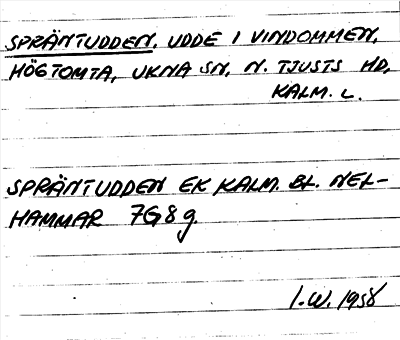 SPRÄNTUDDEN, UDDE I VINDOMMEN,
HÖGTOMTA, UKNA SN, N. TJUSTS HD,
KALM. L.
SPRÄNTUDDEN EK KALM. BL. NEL-
HAMMAR 7G8g.
I.W. 1958